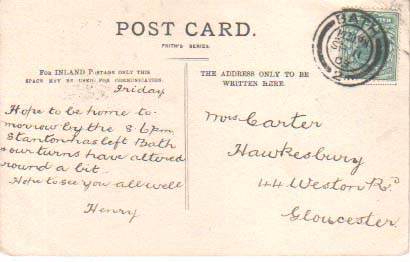 POST CARD.
FRITH'S SERIES.
FOR INLAND POSTAGE ONLY THIS
SPACE MAY BE USED FOR COMMUNICATION.
THE ADDRESS ONLY TO BE
WRITTEN HERE.
BATH
Friday
Hope to be home to-
morrow by the
Stanton has left Bath
& our turns have altered
round a bit.
Hope to see you all well
Henry
Mrs Carter
Hawkesbury
44 Weston Rd
Gloucester.